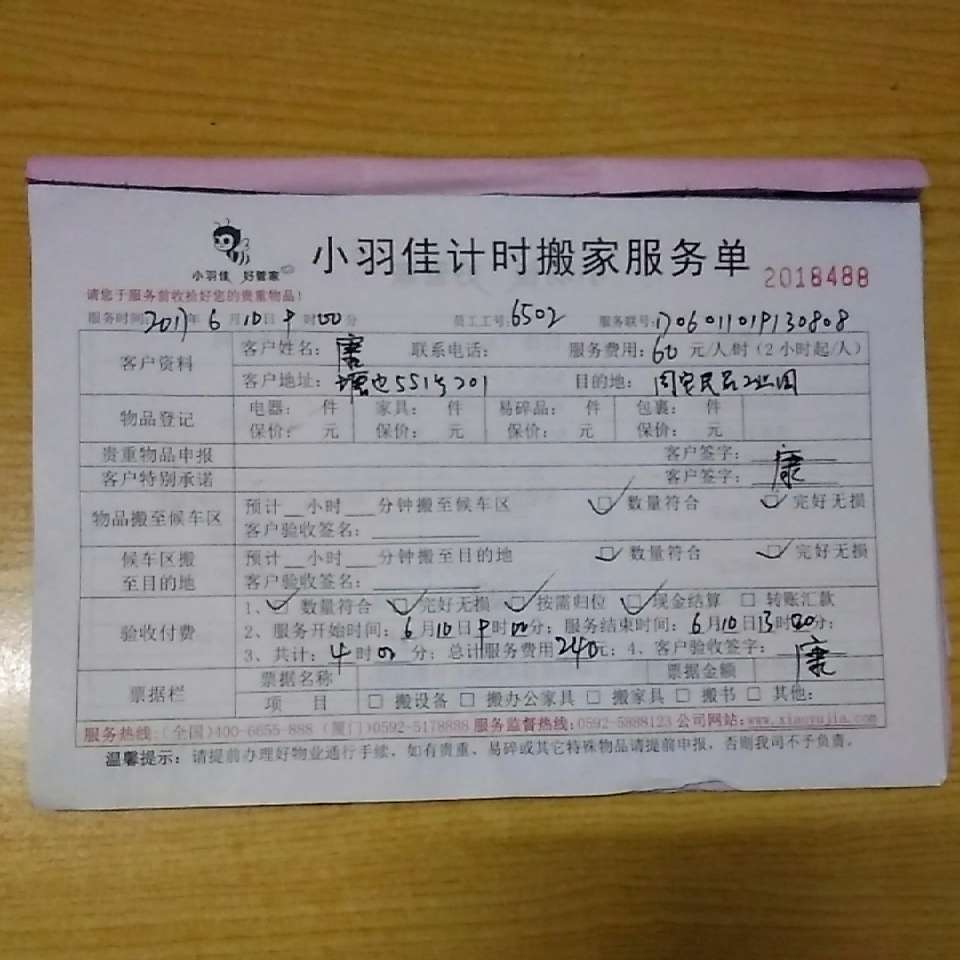 小羽佳 好管家
小羽佳计时搬家服务单 2018488
请您于服务前收检好您的贵重物品！
服务时间: 2017年6月10日9时00分 员工工号: 6502 服务联号: 1706011019130808
客户资料 客户姓名: 康 联系电话: 服务费用: 60元/人/时（2小时起/人）
客户地址: 塘边551号201 目的地: 同安民品工业园
物品登记 电器: 件 家具: 件 易碎品: 件 包裹: 件
保价: 元 保价: 元 保价: 元 保价: 元
贵重物品申报 客户签字:
客户特别承诺 客户签字: 康
物品搬至候车区 预计__小时___分钟搬至候车区 □数量符合 □完好无损
客户验收签名:
候车区搬至目的地 预计__小时___分钟搬至目的地 □数量符合 □完好无损
客户验收签名:
验收付费 1、□数量符合 □完好无损 □按需归位 □现金结算 □转账汇款
2、服务开始时间: 6月10日9时00分; 服务结束时间: 6月10日13时00分;
3、共计: 4时00分; 总计服务费用240元; 4、客户验收签字: 康
票据栏 票据名称 票据金额
项目 □搬设备 □搬办公家具 □搬家具 □搬书 □其他:
服务热线:(全国)400-6655-888 (厦门)0592-5178888 服务监督热线:0592-5888123 公司网站:www.xiaoyujia.com
温馨提示: 请提前办理好物业通行手续，如有贵重、易碎或其它特殊物品请提前申报，否则我司不予负责。